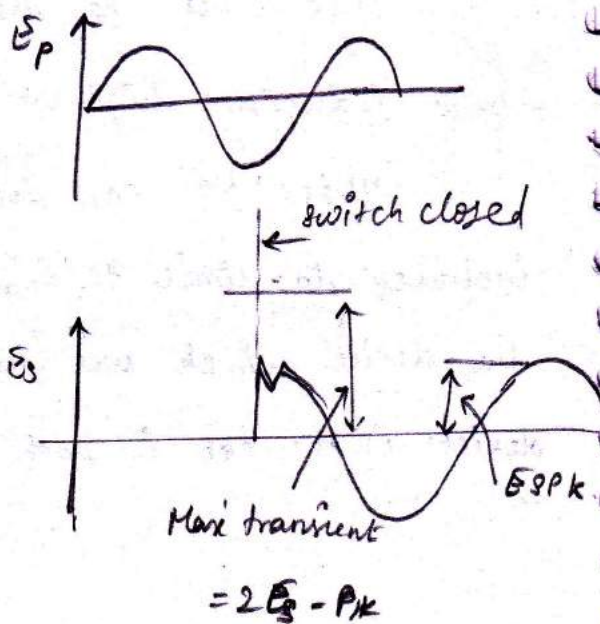 Ep
switch closed
Es
ESPk
Maxi transient
= 2 Es - Pk